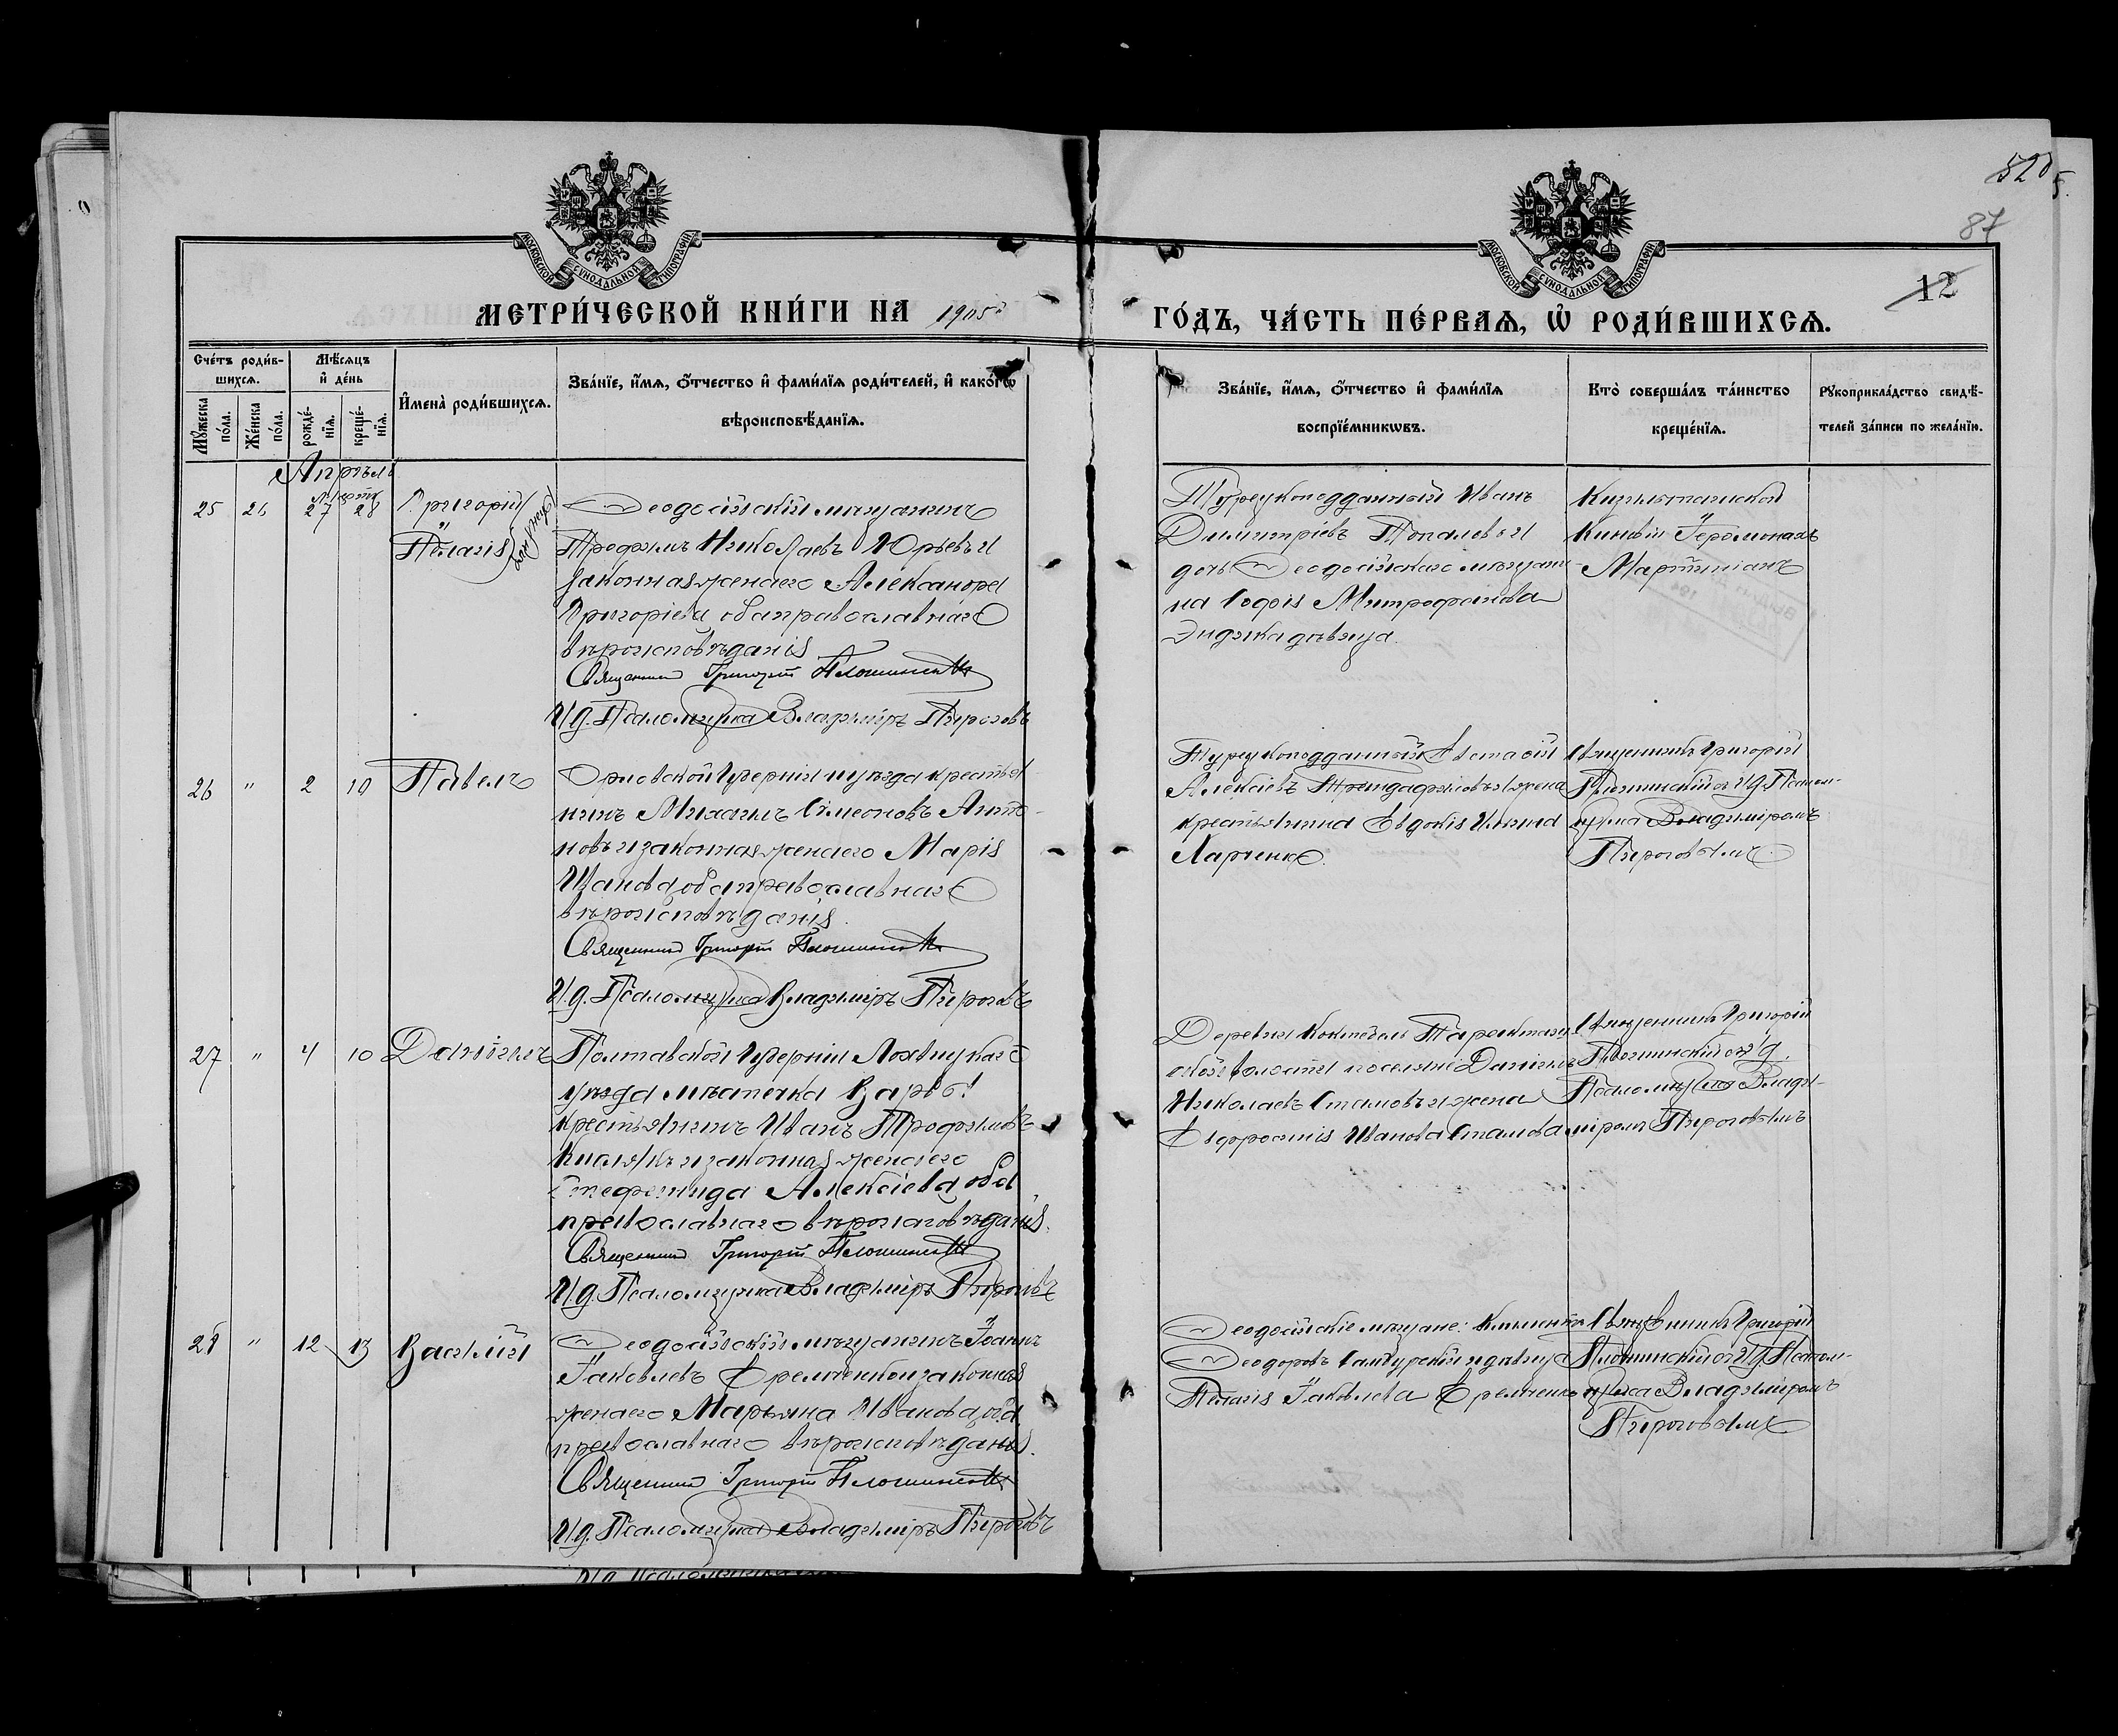 520
87
12
МОСКОВСКОЙ СУНОДАЛЬНОЙ ТИПОГРАФИИ
МОСКОВСКОЙ СУНОДАЛЬНОЙ ТИПОГРАФИИ
МЕТРИ́ЧЕСКОЙ КНИ́ГИ НА 1905й
ГО́ДЪ, ЧА́СТЬ ПЕ́РВАѦ, Ѽ РОДИ́ВШИХСѦ.
Сче́тъ роди́в-
шихсѧ.
Мѣ́сѧцъ
и҆ де́нь
Мꙋ́жеска
по́ла.
Же́нска
по́ла.
рожде́-
нїѧ.
креще́-
нїѧ.
И҆мена̀ роди́вшихсѧ.
Зва́нїе, и҆́мѧ, ѻ҆́тчество и҆ фами́лїѧ роди́телей, и҆ како́гѡ
вѣроисповѣ́данїѧ.
Зва́нїе, и҆́мѧ, ѻ҆́тчество и҆ фами́лїѧ
воспрїе́мникѡвъ.
Кто̀ соверша́лъ та́инство
креще́нїѧ.
Рꙋкоприкла́дство свидѣ́-
телей за́писи по жела́нїю.
Апрѣль
Марта
25 26 27 28 Григорій
Пелагія
Близнецы
Ѳеодосійскій мѣщанинъ
Трофимъ Николаевъ Юрьевъ и
законная жена его Александра
Григоріева оба православнаго
вѣроисповѣданія
Священникъ Григорій Плошинскій
И.д. Псаломщика Владиміръ Пироговъ
Турецкоподданный Иванъ
Димитріевъ Топаловъ и
дочь Ѳеодосійскаго мѣщани-
на Софія Митрофанова
дѣвица.
Кизилташской
Киновіи Іеромонахъ
Мартиніанъ
26 " 2 10 Павелъ
Орловской Губерніи и уѣзда крестья-
нинъ Михаилъ Симеоновъ Анто-
новъ и законная жена его Марія
Иванова оба православнаго
вѣроисповѣданія.
Священникъ Григорій Плошинскій
И.д. Псаломщика Владиміръ Пироговъ
Турецкоподданный Евстафій
Алексіевъ Триндафиловъ и жена
крестьянина Евдокія Ильина
Харченко.
Священникъ Григорій
Плошинскій съ И.д. Псалом-
щика Владиміромъ
Пироговымъ.
27 " 4 10 Даніилъ
Полтавской Губерніи Лохвицкаго
уѣзда мѣстечка Варвы
крестьянинъ Иванъ Трофимовъ
Кислякъ и законная жена его
Стефанида Алексіева оба
православнаго вѣроисповѣданія.
Священникъ Григорій Плошинскій
И.д. Псаломщика Владиміръ Пироговъ
Деревни Коктебель Таракташ-
ской волости поселяне Даніилъ
Николаевъ Стамовъ и жена
Евфросинія Иванова Стамова
Священникъ Григорій
Плошинскій съ И.д.
Псаломщика Влади-
міромъ Пироговымъ
28 " 12 13 Василій
Ѳеодосійскій мѣщанинъ Іоаннъ
Іаковлевъ Еременко и законная
жена его Марьяна Иванова, оба
православнаго вѣроисповѣданія.
Священникъ Григорій Плошинскій
И.д. Псаломщика Владиміръ Пироговъ
Ѳеодосійскіе мѣщане: Климентъ
Ѳеодоровъ Самбурскій и дѣвица
Пелагія Іаковлева Еременко
Священникъ Григорій
Плошинскій съ И.д. Псалом-
щика Владиміромъ
Пироговымъ